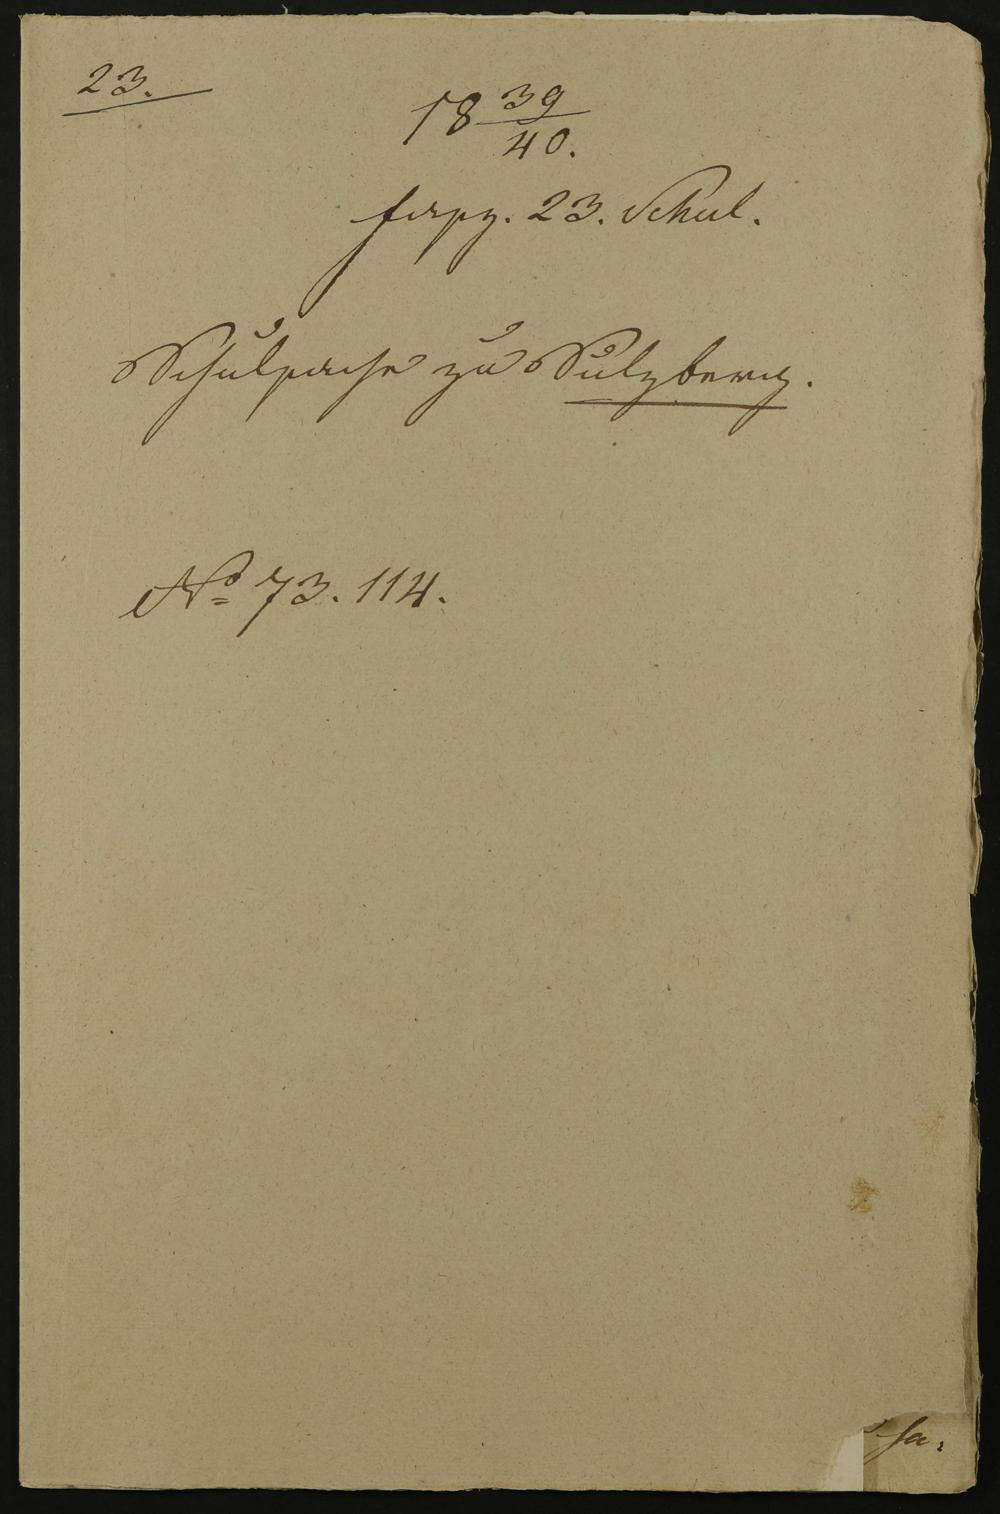 23.
18 39/40.
fasz. 23. Schul.
Schulsache zu Sulzberg.
No 73. 114.
fa.